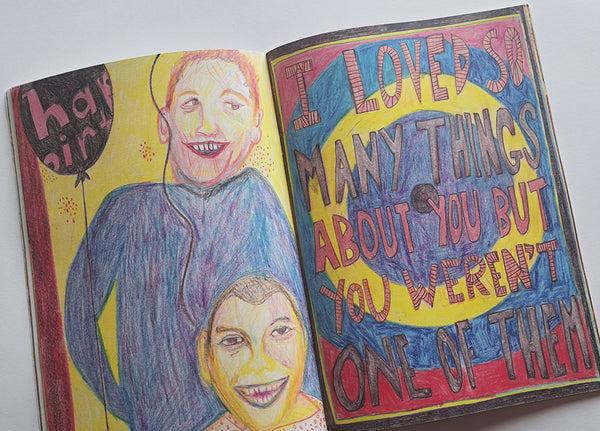 hap
birt
I LOVED SO
MANY THINGS
ABOUT YOU BUT
YOU WEREN'T
ONE OF THEM